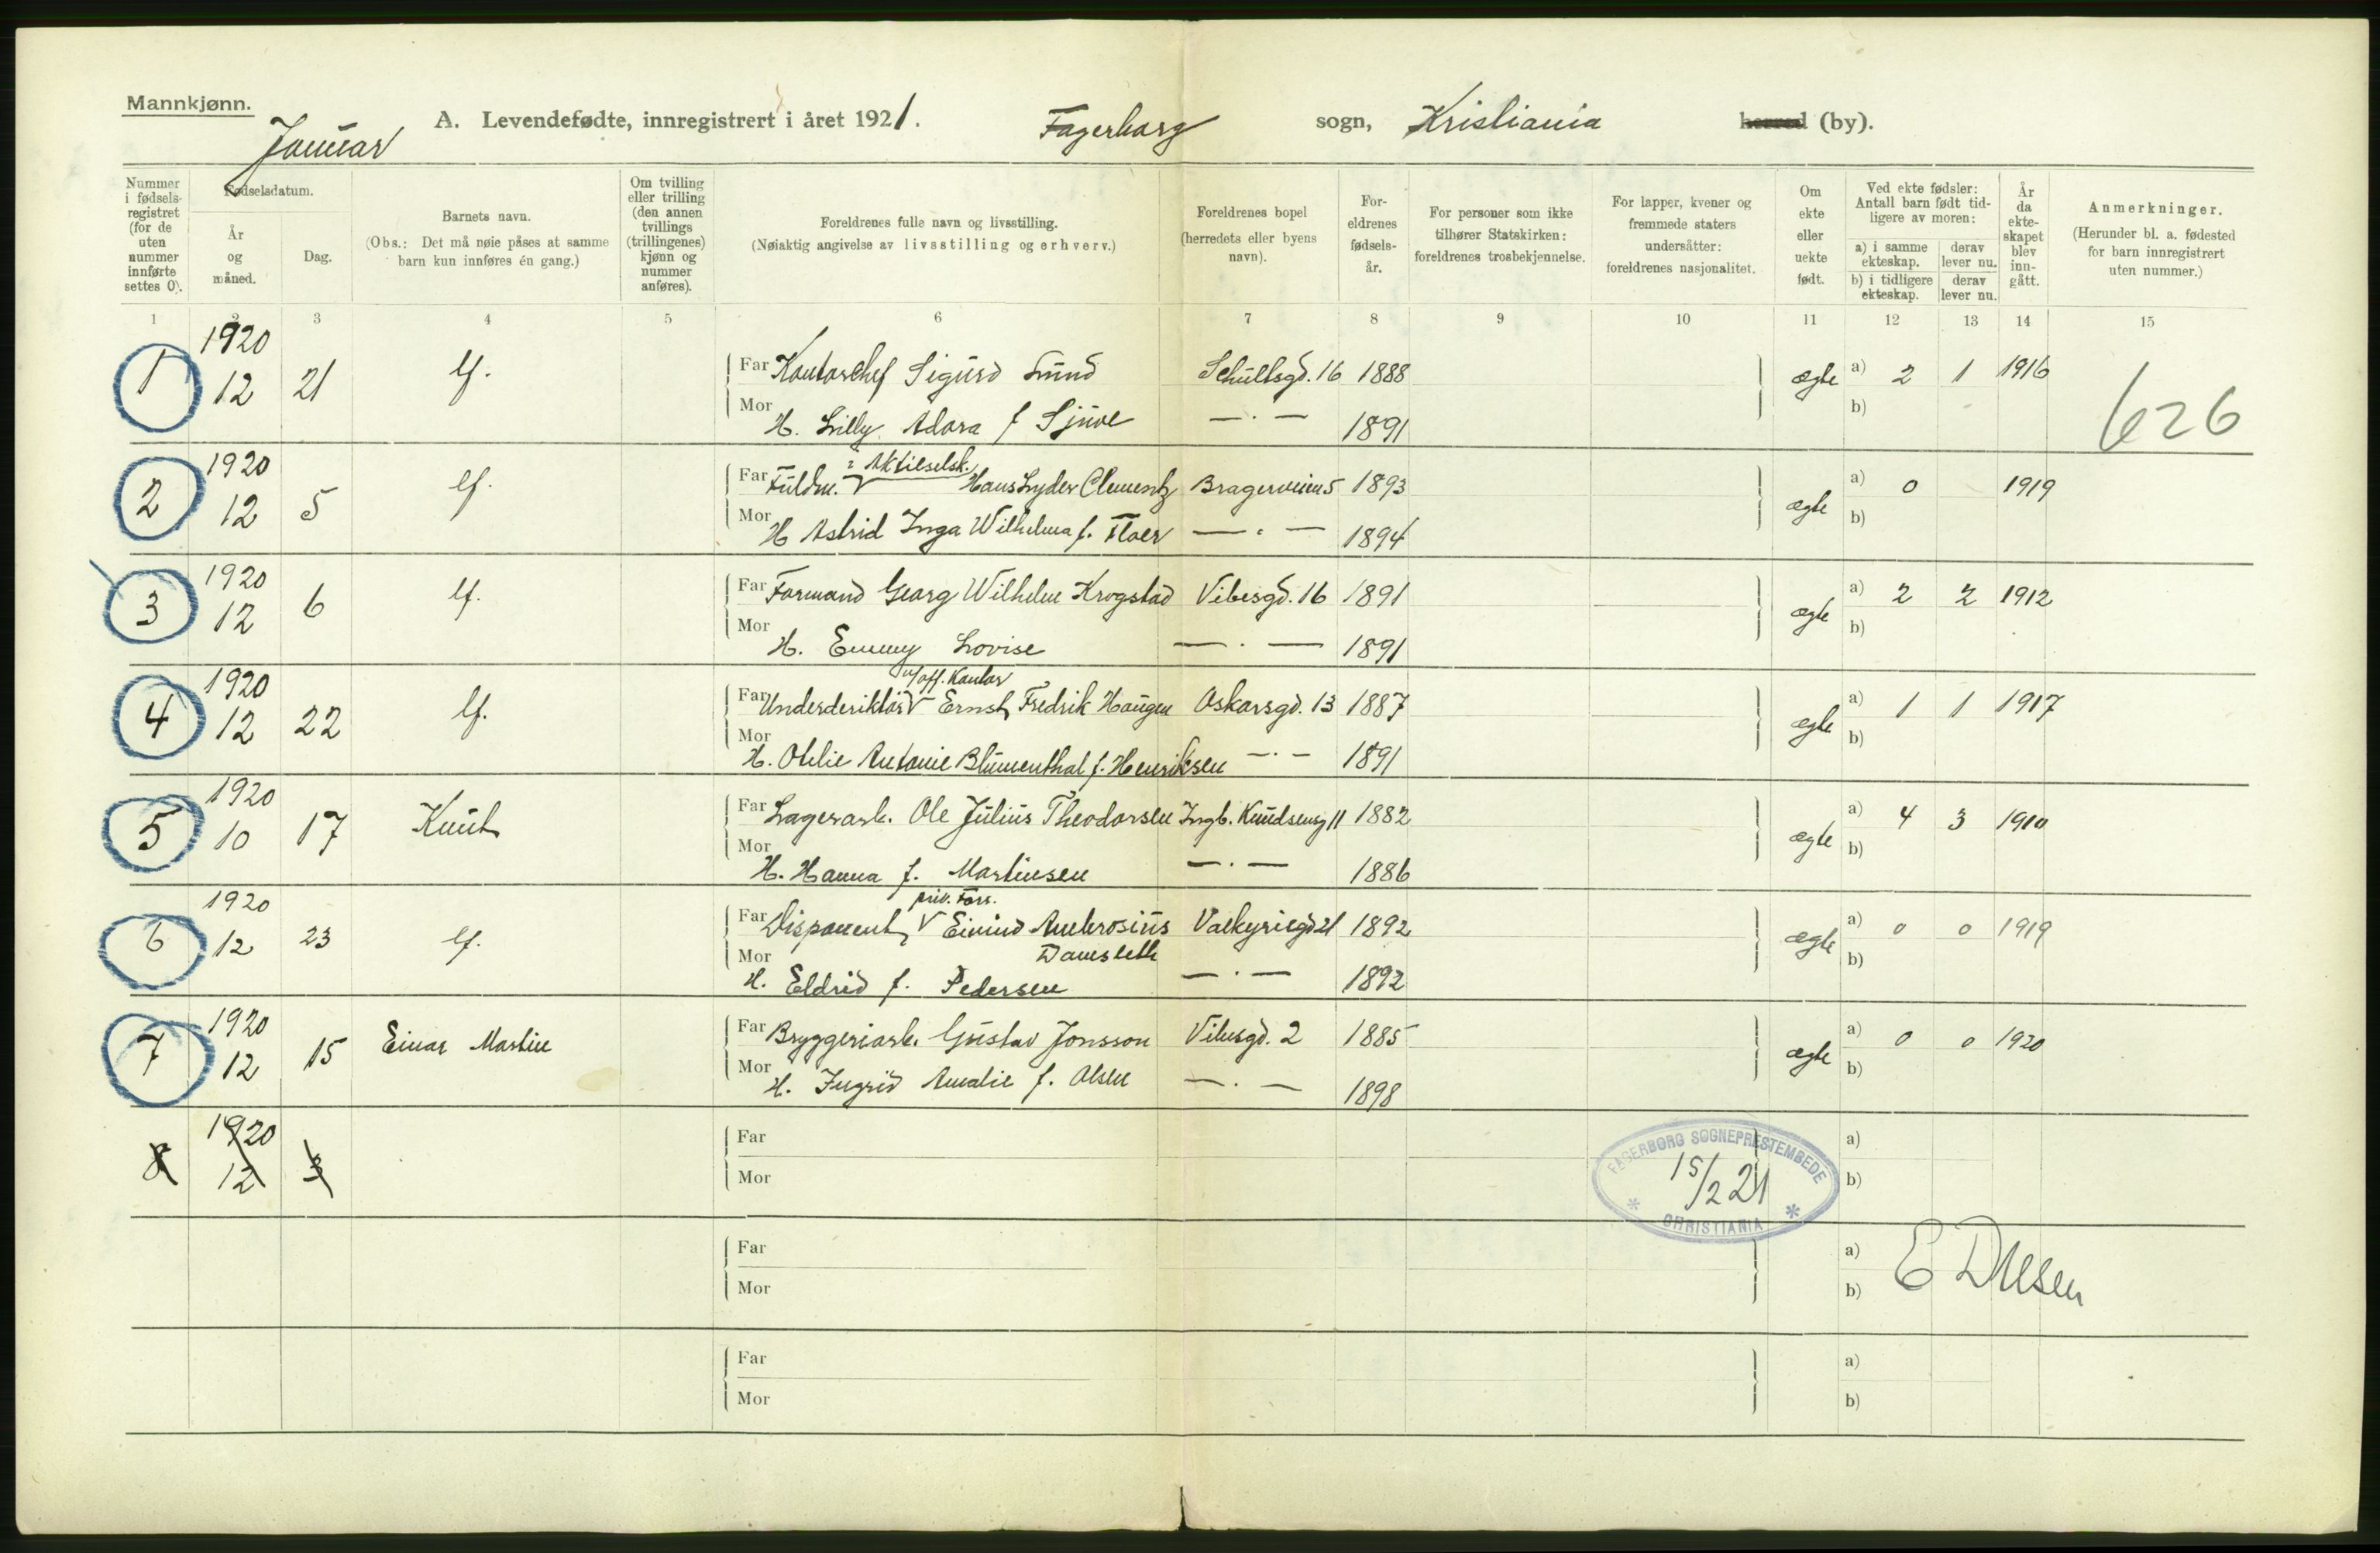 Mannkjønn.
Januar
A. Levendefødte, innregistrert i året 1921. Fagerborg sogn, Kristiania herred (by).
Nummer i fødselsregistret (for de uten nummer innførte settes 0).
Fødselsdatum.
År og måned.
Dag.
Barnets navn.
(Obs.: Det må nøie påses at samme barn kun innføres én gang.)
Om tvilling eller trilling (den annen tvillings (trillingenes) kjønn og nummer anføres).
Foreldrenes fulle navn og livsstilling.
(Nøiaktig angivelse av livsstilling og erhverv.)
Foreldrenes bopel (herredets eller byens navn).
Foreldrenes fødselsår.
For personer som ikke tilhører Statskirken: foreldrenes trosbekjennelse.
For lapper, kvener og fremmede staters undersåtter: foreldrenes nasjonalitet.
Om ekte eller uekte født.
Ved ekte fødsler: Antall barn født tidligere av moren:
a) i samme ekteskap.
derav lever nu.
b) i tidligere ekteskap.
derav lever nu.
År da ekteskapet blev inngått.
Anmerkninger.
(Herunder bl. a. fødested for barn innregistrert uten nummer.)
1 2 3 4 5 6 7 8 9 10 11 12 13 14 15
1920
1 12 21 lf. Far Kontorchef Sigurd Lund Schultsgd. 16 1888 ægte a) 2 1 1916
Mor H. Lilly Adora f Sjuve — . — 1891 b)
626
1920 i Aktieselsk.
2 12 5 lf. Far Fuldm. V Hans Lyder Clementz Brageveien 5 1893 ægte a) 0 1919
Mor H Astrid Inga Wilhelma f. Floer — . — 1894 b)
1920
3 12 6 lf. Far Formand Georg Wilhelm Krogstad Vibesgd. 16 1891 ægte a) 2 2 1912
Mor H. Emmy Lovise — . — 1891 b)
1920 v/off. Kontor
4 12 22 lf. Far Underdirektør V Ernst Fredrik Haugen Oskarsgd. 13 1887 ægte a) 1 1 1917
Mor H. Otilie Antonie Blumenthal f. Henriksen — . — 1891 b)
1920
5 10 17 Knut Far Lagerarb. Ole Julius Theodorsen Ingb. Knudsensg 11 1882 ægte a) 4 3 1910
Mor H. Hanna f. Martinsen — . — 1886 b)
1920 priv. Forr.
6 12 23 lf. Far Disponent V Eivind Ambrosius Valkyriegd 21 1892 ægte a) 0 0 1919
Damsleth
Mor H. Eldrid f. Pedersen — . — 1892 b)
1920
7 12 15 Einar Martin Far Bryggeriarb. Gustav Jonsson Vibesgd. 2 1885 ægte a) 0 0 1920
Mor H. Ingrid Amalie f. Olsen — . — 1898 b)
1920
8 12 3 Far a)
Mor b)
FAGERBORG SOGNEPRESTEMBEDE
15/2 21
* CHRISTIANIA *
Far a)
Mor b)
E Diesen
Far a)
Mor b)